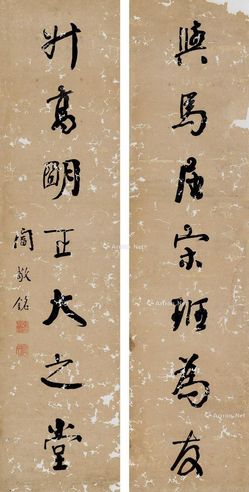 與馬屈宋班為友
升高明正大之堂
閻敬銘